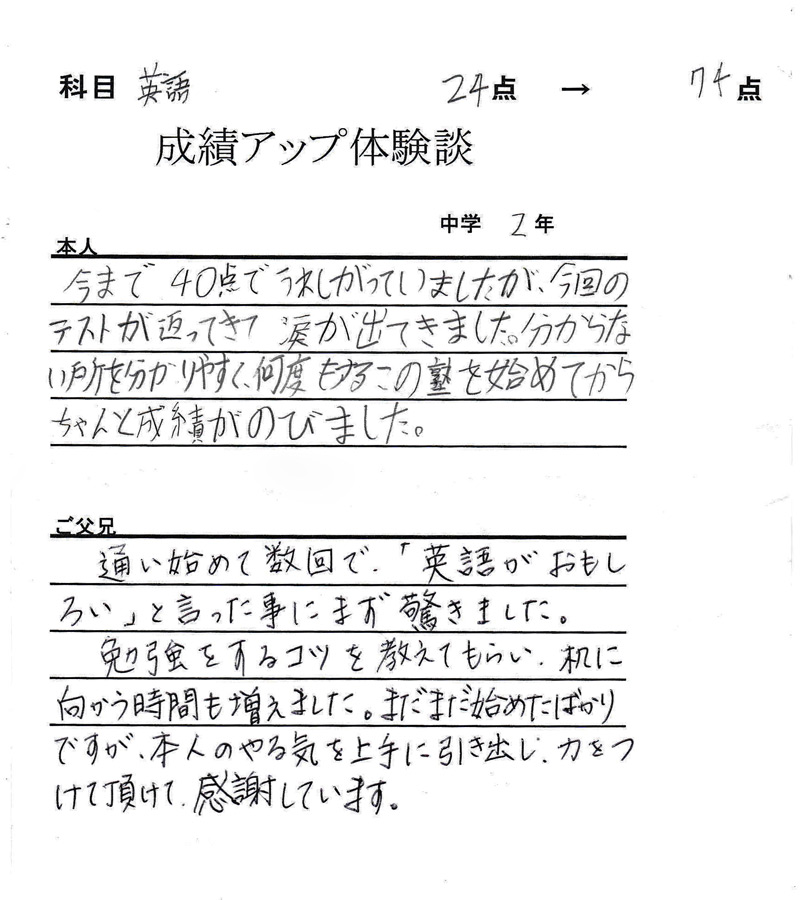 科目 英語 24点 → 74点
成績アップ体験談
中学 2年
本人
今まで 40点で うれしがっていましたが、今回の
テストが返ってきて 涙が出てきました。分からな
い所を分かりやすく、何度もするこの塾を始めてから
ちゃんと成績がのびました。
ご父兄
通い始めて数回で、「英語がおもし
ろい」と言った事にまず驚きました。
勉強をするコツを教えてもらい、机に
向かう時間も増えました。まだまだ始めたばかり
ですが、本人のやる気を上手に引き出し、力をつ
けて頂けて、感謝しています。